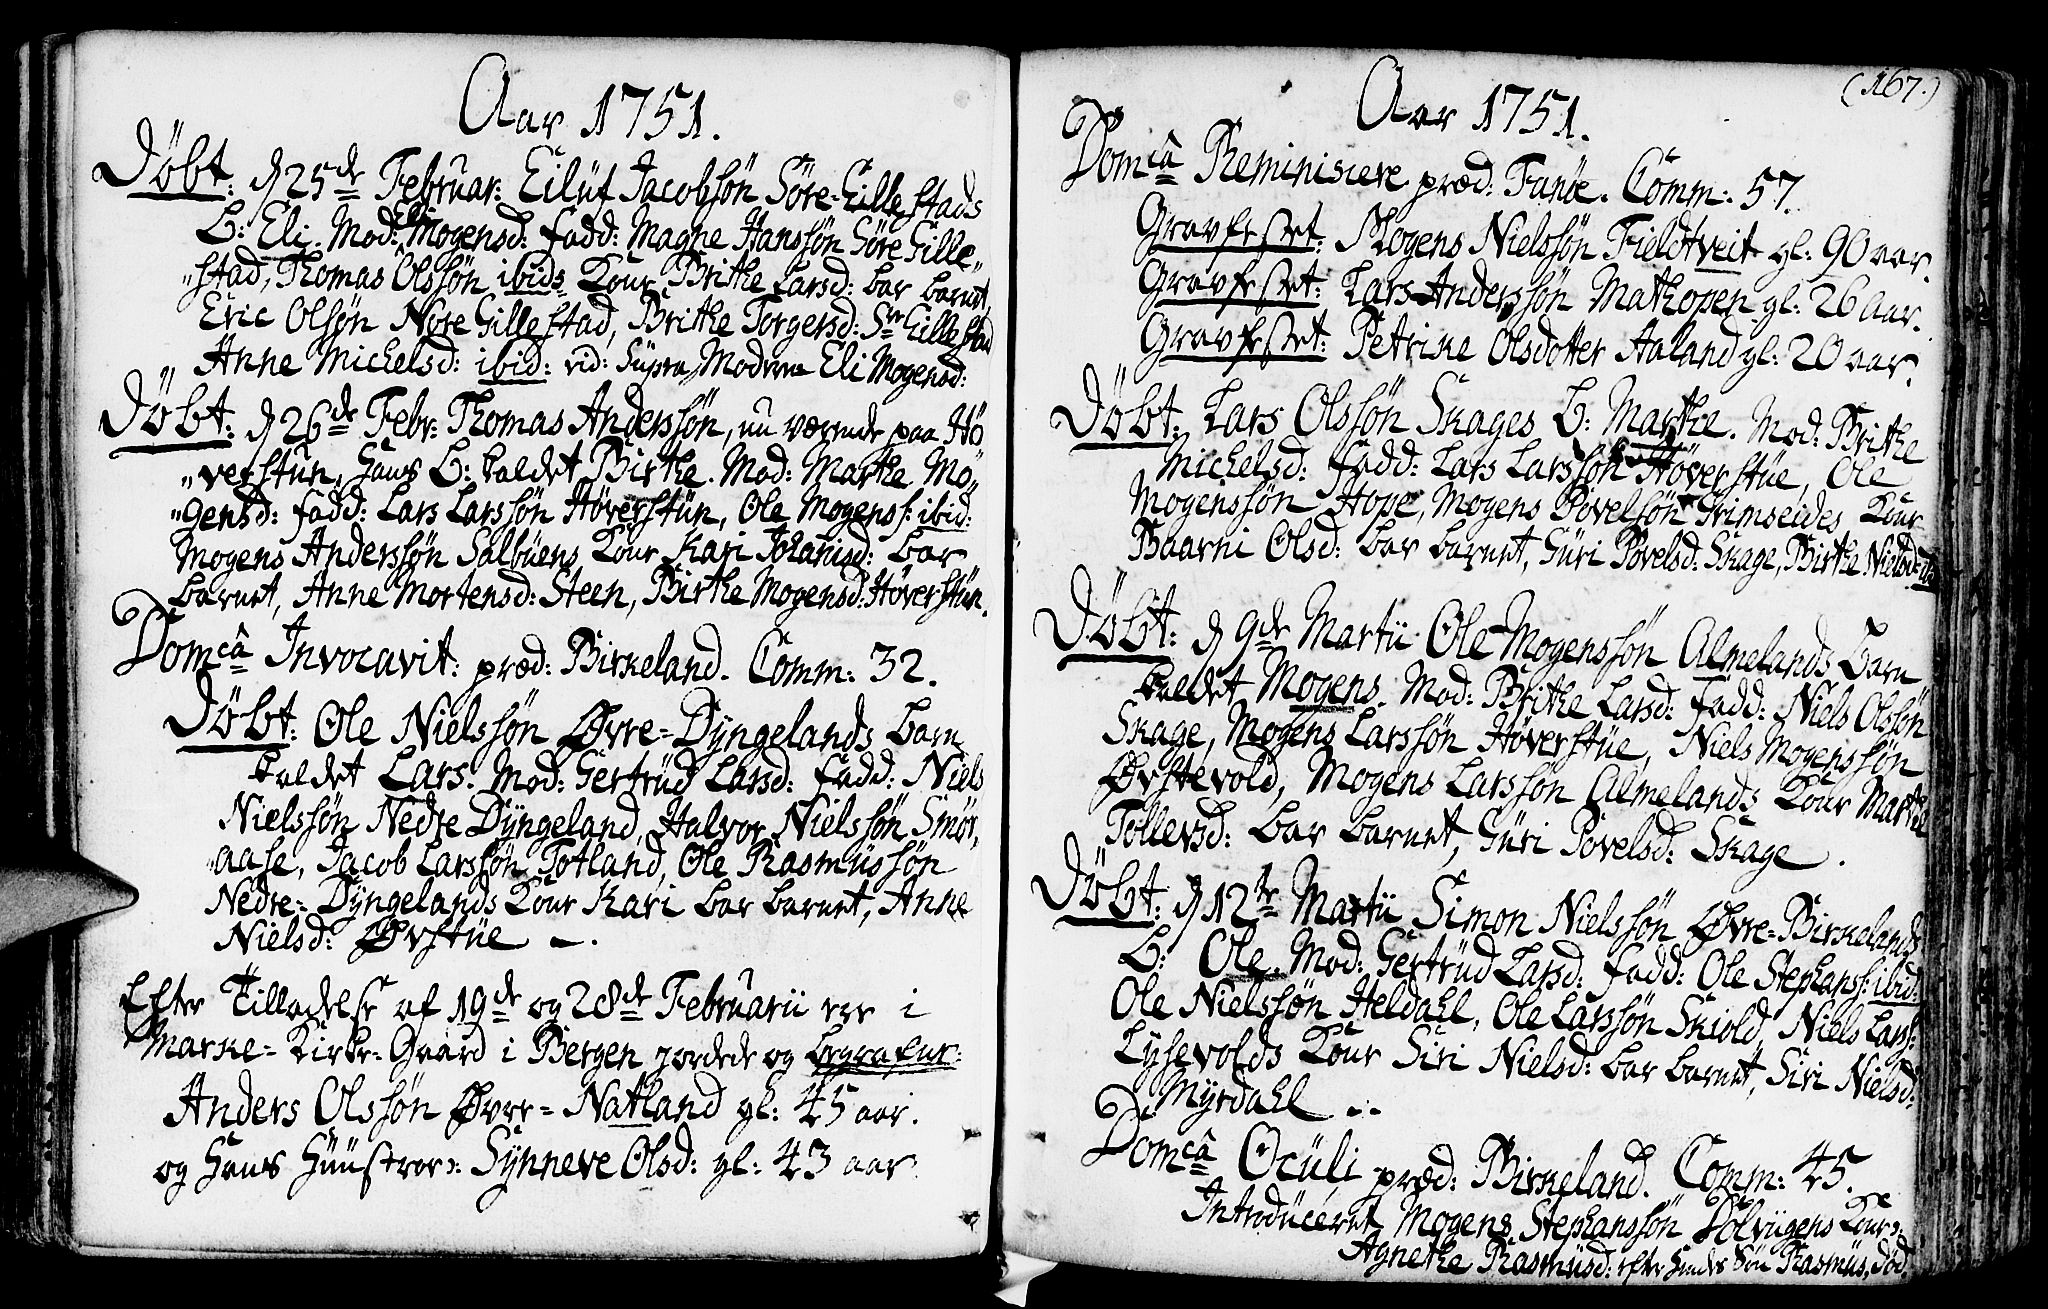 Aar 1751.
Döbt: d 25de Februar: Eiluf Jacobsön Söre-Gillestads
B: Eli. Mod: Eli Mogensd: fadd: Magne Hanssön Söre Gille„
„stad, Thomas Olssön ibids Kone Brithe Larsd: bar barnet,
Eric Olsön Nore Gillestad, Brithe Torgersd: Sre Gillestad
Anne Michelsd: ibid: vid: supra, Moderen Eli Mogensd:
Döbt: d 26de Febr: Thomas Anderssön, nu værende paa Hö„
„verstun, hans B: kaldet Birthe. Mod: Marthe Mo„
„gensd: fadd: Lars Larssön Höverstun, Ole Mogenss: ibid:
Mogens Anderssön Salbuens Kone Kari Johanisd: bar
barnet, Anne Mortensd: Steen, Birthe Mogensd: Höverstun.
Domca Invocavit: præd: Birkeland. Comm: 32.
Döbt: Ole Nielssön Øvre=Dyngelands barn
kaldet Lars. Mod: Gertrud Larsd: fadd: Niels
Nielssön Nedre Dyngeland, Halvor Nielssön Smör„
„aase, Jacob Larssön Totland, Ole Rasmussön
Nedre=Dyngelands Kone Kari bar barnet, Anne
Nielsd: Øvstüe —.
Efter Tilladelse af 19de og 28de Februarii ere i
Marke=Kirke=Gaard i Bergen jordede og begrafne:
Anders Olssön Øvre=Natland gl: 45 aar.
og hans Huustroe: Synneve Olsd: gl: 43 aar.
(167.)
Aar 1751.
Domca Reminiscere præd: Fanöe. Comm: 57.
Gravfestet: Mogens Nielssön Fieldtveit gl: 90 aar.
Gravfestet: Lars Anderssön Mathopen gl: 26 aar.
Gravfestet: Petrike Olsdotter Aaland gl: 20 aar.
Döbt: Lars Olssön Skages B: Marthe. Mod: Brithe
Michelsd: fadd: Lars Larssön Höverstüe, Ole
Mogenssön Hope, Mogens Povelsön Grimseides Kone
Baarni Olsd: bar barnet, Guri Povelsd: Skage, Birthe Nielsd: ib:
Döbt: d 9de Martii Ole Mogenssön Almelands barn
kaldet Mogens. Mod: Brithe Larsd: fadd: Niels Olssön
Skage, Mogens Larssön Höverstüe, Niels Mogenssön
Øvstevold, Mogens Larssön Almelands Kone Marthe
Tollevsd: bar barnet, Guri Povelsd: Skage.
Döbt: d 12te Martii Simon Nielssön Øvre=Birkelands
B: Ole. Mod: Gertrud Larsd: fadd: Ole Stephanss: ibid:
Ole Nielssön Heldahl, Ole Larssön Skiold, Niels Larss:
Lysevolds Kone Siri Nielsd: bar barnet, Siri Nielsd:
Myrdahl ...
Domca Oculi præd: Birkeland. Comm: 45.
Introduceret Mogens Stephanssön Dolvigens Kone:
Agnethe Rasmusd: efter hendes Sön Rasmus, död.